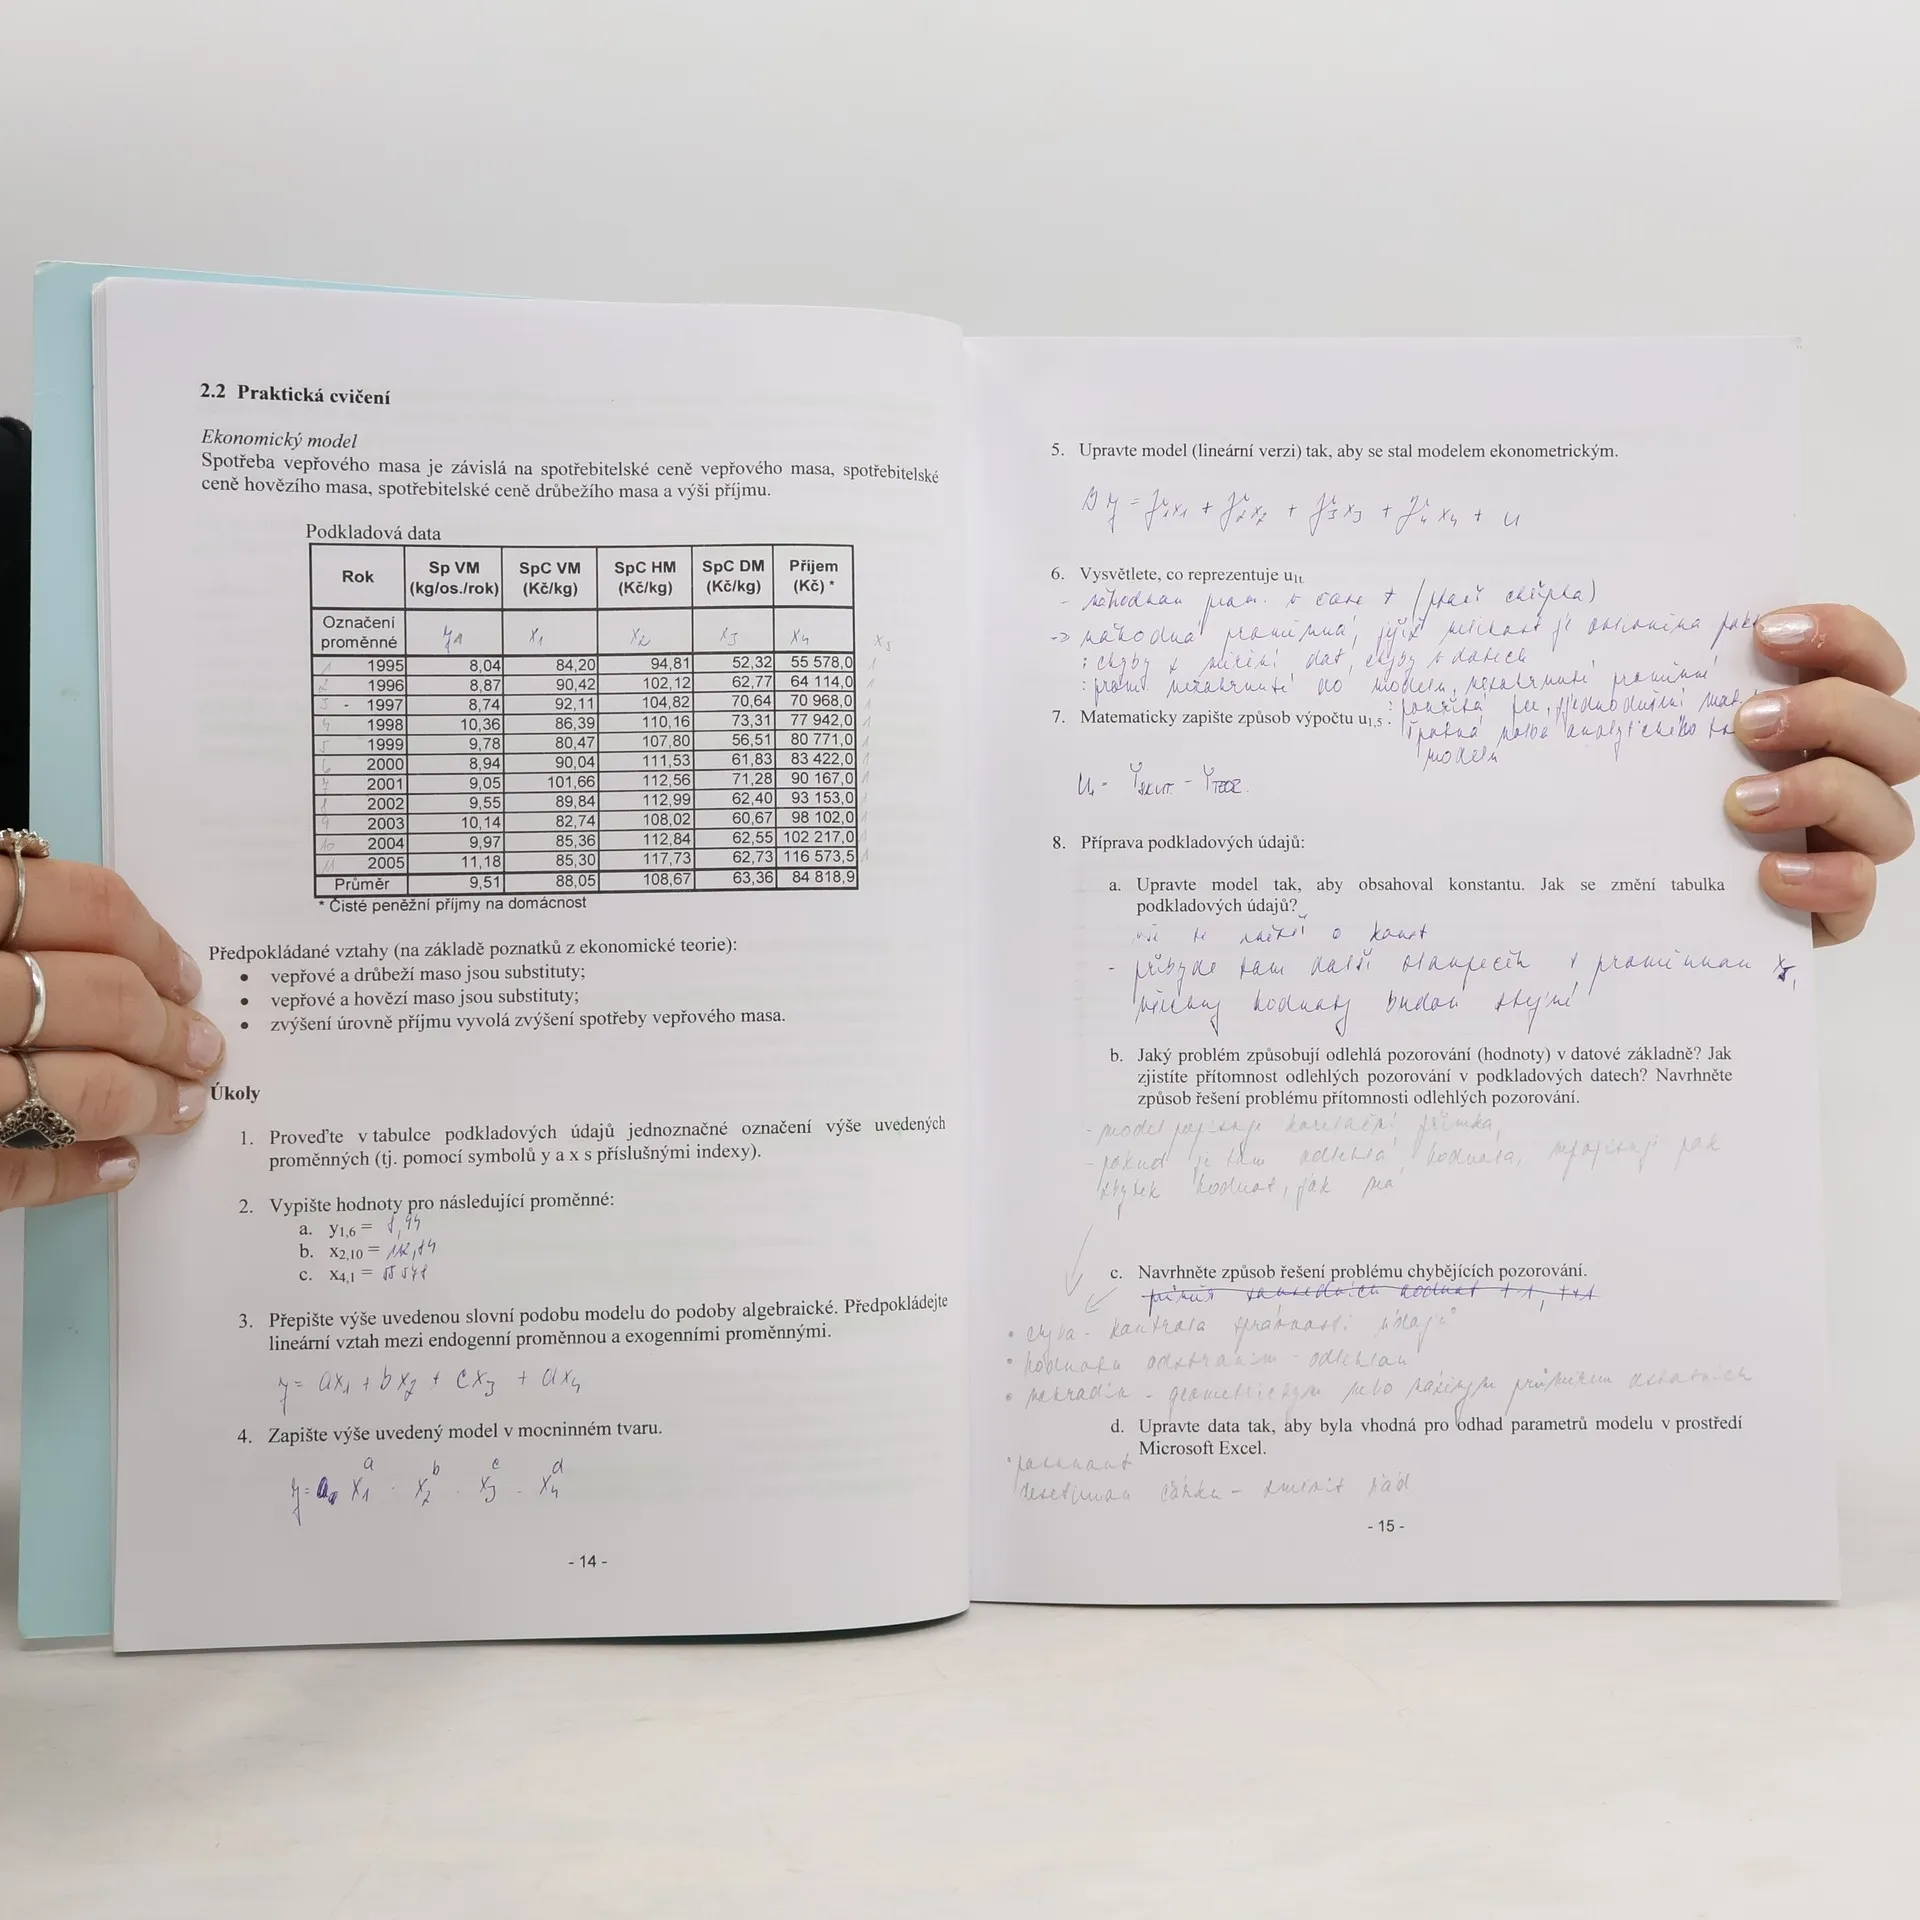 2.2 Praktická cvičení
Ekonomický model
Spotřeba vepřového masa je závislá na spotřebitelské ceně vepřového masa, spotřebitelské
ceně hovězího masa, spotřebitelské ceně drůbežího masa a výši příjmu.
Podkladová data
Rok Sp VM (kg/os./rok) SpC VM (Kč/kg) SpC HM (Kč/kg) SpC DM (Kč/kg) Příjem (Kč) *
Označení proměnné y1 x1 x2 x3 x4 x5
1 1995 8,04 84,20 94,81 52,32 55 578,0 1
2 1996 8,87 90,42 102,12 62,77 64 114,0 1
3 - 1997 8,74 92,11 104,82 70,64 70 968,0 1
4 1998 10,36 86,39 110,16 73,31 77 942,0 1
5 1999 9,78 80,47 107,80 56,51 80 771,0 1
6 2000 8,94 90,04 111,53 61,83 83 422,0 1
7 2001 9,05 101,66 112,56 71,28 90 167,0 1
8 2002 9,55 89,84 112,99 62,40 93 153,0 1
9 2003 10,14 82,74 108,02 60,67 98 102,0 1
10 2004 9,97 85,36 112,84 62,55 102 217,0 1
11 2005 11,18 85,30 117,73 62,73 116 573,5 1
Průměr 9,51 88,05 108,67 63,36 84 818,9
* Čisté peněžní příjmy na domácnost
Předpokládané vztahy (na základě poznatků z ekonomické teorie):
• vepřové a drůbeží maso jsou substituty;
• vepřové a hovězí maso jsou substituty;
• zvýšení úrovně příjmu vyvolá zvýšení spotřeby vepřového masa.
Úkoly
1. Proveďte v tabulce podkladových údajů jednoznačné označení výše uvedených
proměnných (tj. pomocí symbolů y a x s příslušnými indexy).
2. Vypište hodnoty pro následující proměnné:
a. y1,6 = 8,94
b. x2,10 = 112,84
c. x4,1 = 55 578
3. Přepište výše uvedenou slovní podobu modelu do podoby algebraické. Předpokládejte
lineární vztah mezi endogenní proměnnou a exogenními proměnnými.
y = ax1 + bx2 + cx3 + dx4
4. Zapište výše uvedený model v mocninném tvaru.
y = a0 x1^a · x2^b · x3^c · x4^d
- 14 -
5. Upravte model (lineární verzi) tak, aby se stal modelem ekonometrickým.
6. Vysvětlete, co reprezentuje u1t
- náhodnou prom. v čase t (ptačí chřipka)
-> náhodná proměnná, jejíž velikost je ovlivněna
: chyby v měření dat, chyby v datech
: prom. nezahrnuté do modelu, nezahrnutí proměnné
7. Matematicky zapište způsob výpočtu u1,5 :
špatná volba analytického
modelu
u = Yskut. - Yteor.
8. Příprava podkladových údajů:
a. Upravte model tak, aby obsahoval konstantu. Jak se změní tabulka
podkladových údajů?
o konst
- přibyde tam další sloupeček s proměnnou x5,
všechny hodnoty budou stejné
b. Jaký problém způsobují odlehlá pozorování (hodnoty) v datové základně? Jak
zjistíte přítomnost odlehlých pozorování v podkladových datech? Navrhněte
způsob řešení problému přítomnosti odlehlých pozorování.
- model popisuje korelační přímka,
- pokud je tam odlehlá hodnota, nepopisuje pak
zbytek hodnot, jak má
c. Navrhněte způsob řešení problému chybějících pozorování.
průměr sousedních hodnot t-1, t+1
• chyba - kontrola správnosti údajů
• hodnotu odstraním - odlehlou
• nahradím - geometrickým nebo váženým průměrem ostatních
d. Upravte data tak, aby byla vhodná pro odhad parametrů modelu v prostředí
Microsoft Excel.
desetinnou čárku - změnit řád
- 15 -